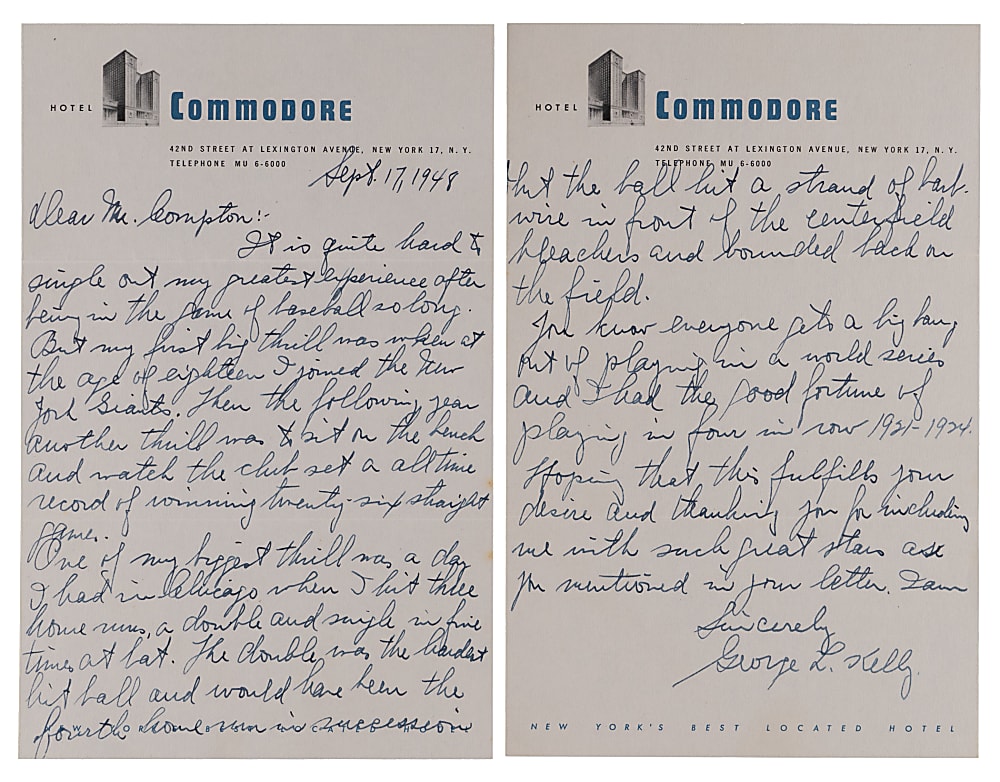 HOTEL COMMODORE
42ND STREET AT LEXINGTON AVENUE, NEW YORK 17, N. Y.
TELEPHONE MU 6-6000
Sept. 17, 1948
Dear Mr. Compton:-
It is quite hard to
single out my greatest experience after
being in the game of baseball so long.
But my first big thrill was when at
the age of eighteen I joined the New
York Giants. Then the following year
another thrill was to sit on the bench
and watch the club set a all time
record of winning twenty-six straight
games.
One of my biggest thrill was a day
I had in Chicago when I hit three
home runs, a double and single in five
times at bat. The double was the hardest
hit ball and would have been the
fourth home run in succession
HOTEL COMMODORE
42ND STREET AT LEXINGTON AVENUE, NEW YORK 17, N. Y.
TELEPHONE MU 6-6000
but the ball hit a strand of barb-
wire in front of the centerfield
bleachers and bounded back on
the field.
You know everyone gets a big bang
out of playing in a world series
and I had the good fortune of
playing in four in row 1921-1924.
Hoping that this fulfills your
desire and thanking you for including
me with such great stars as
you mentioned in your letter. I am
Sincerely
George L. Kelly
NEW YORK'S BEST LOCATED HOTEL